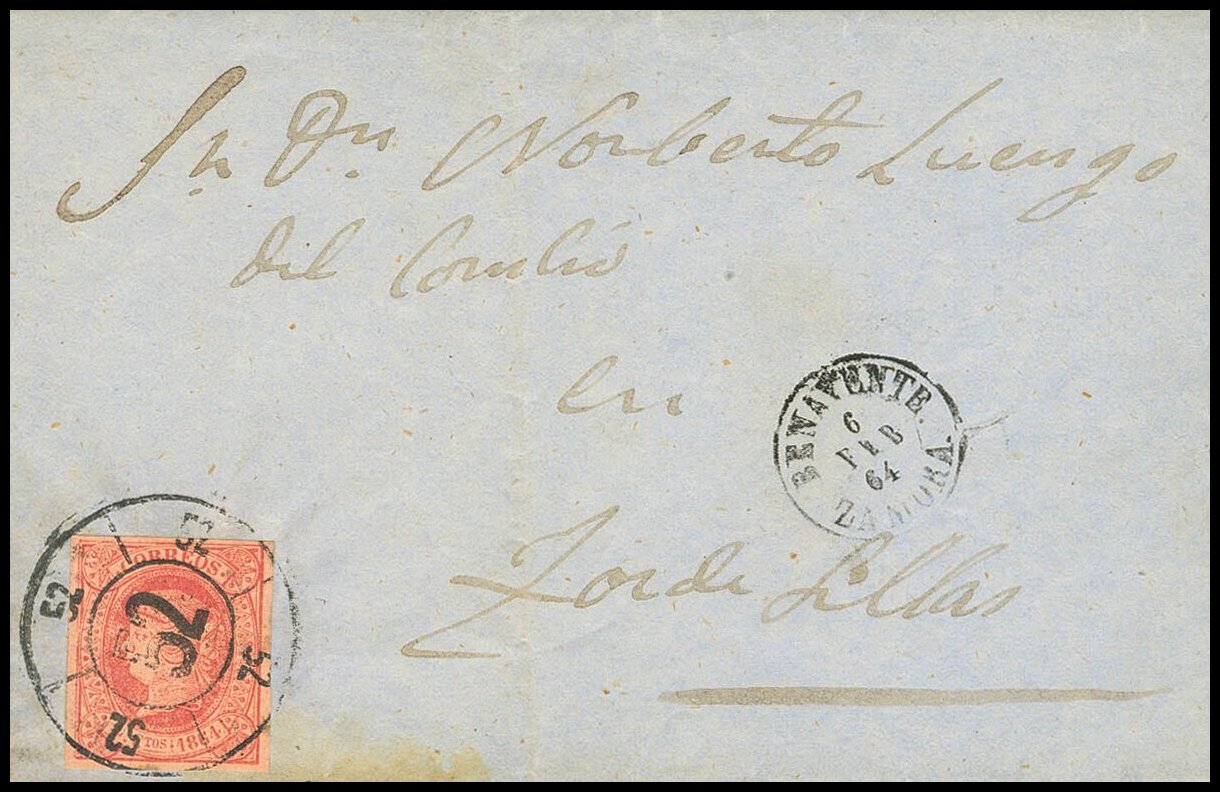 Sr. Dn. Norberto Luengo
del Comercio
en
Tordesillas
BENAVENTE.
6
FEB
64
ZAMORA.
CORREOS
52
52
52
52
52
1864